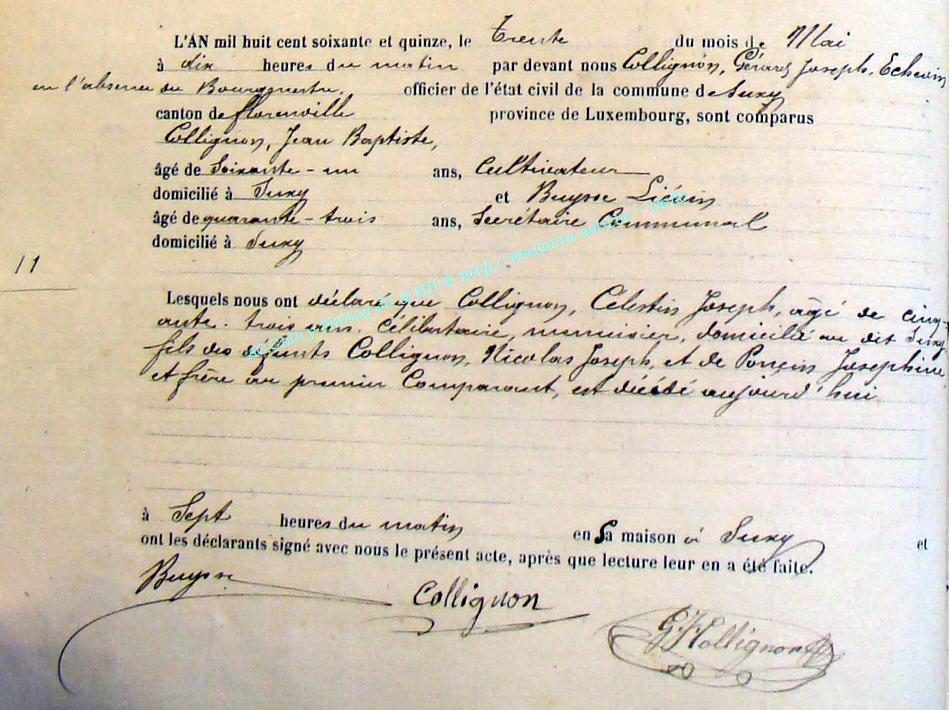 L'AN mil huit cent soixante et quinze, le Trente du mois de Mai
à dix heures du matin par devant nous Collignon, Gérard Joseph, Echevin
en l'absence du Bourgmestre, officier de l'état civil de la commune de Suxy
canton de florenville province de Luxembourg, sont comparus
Collignon, Jean Baptiste,
âgé de Soixante-un ans, Cultivateur
domicilié à Suxy et Buysse
âgé de quarante-trois ans, Secrétaire Communal
domicilié à Suxy
11
Lesquels nous ont déclaré que Collignon, Célestin Joseph, âgé de cinqu-
ante-trois ans. Célibataire, menuisier, domicilié au dit Suxy
fils des défunts Collignon, Nicolas Joseph, et de Ponçin Joséphine
et frère au premier Comparant, est décédé aujourd'hui
à Sept heures du matin en Sa maison à Suxy et
ont les déclarants signé avec nous le présent acte, après que lecture leur en a été faite.
Buysse
Collignon
GJCollignon